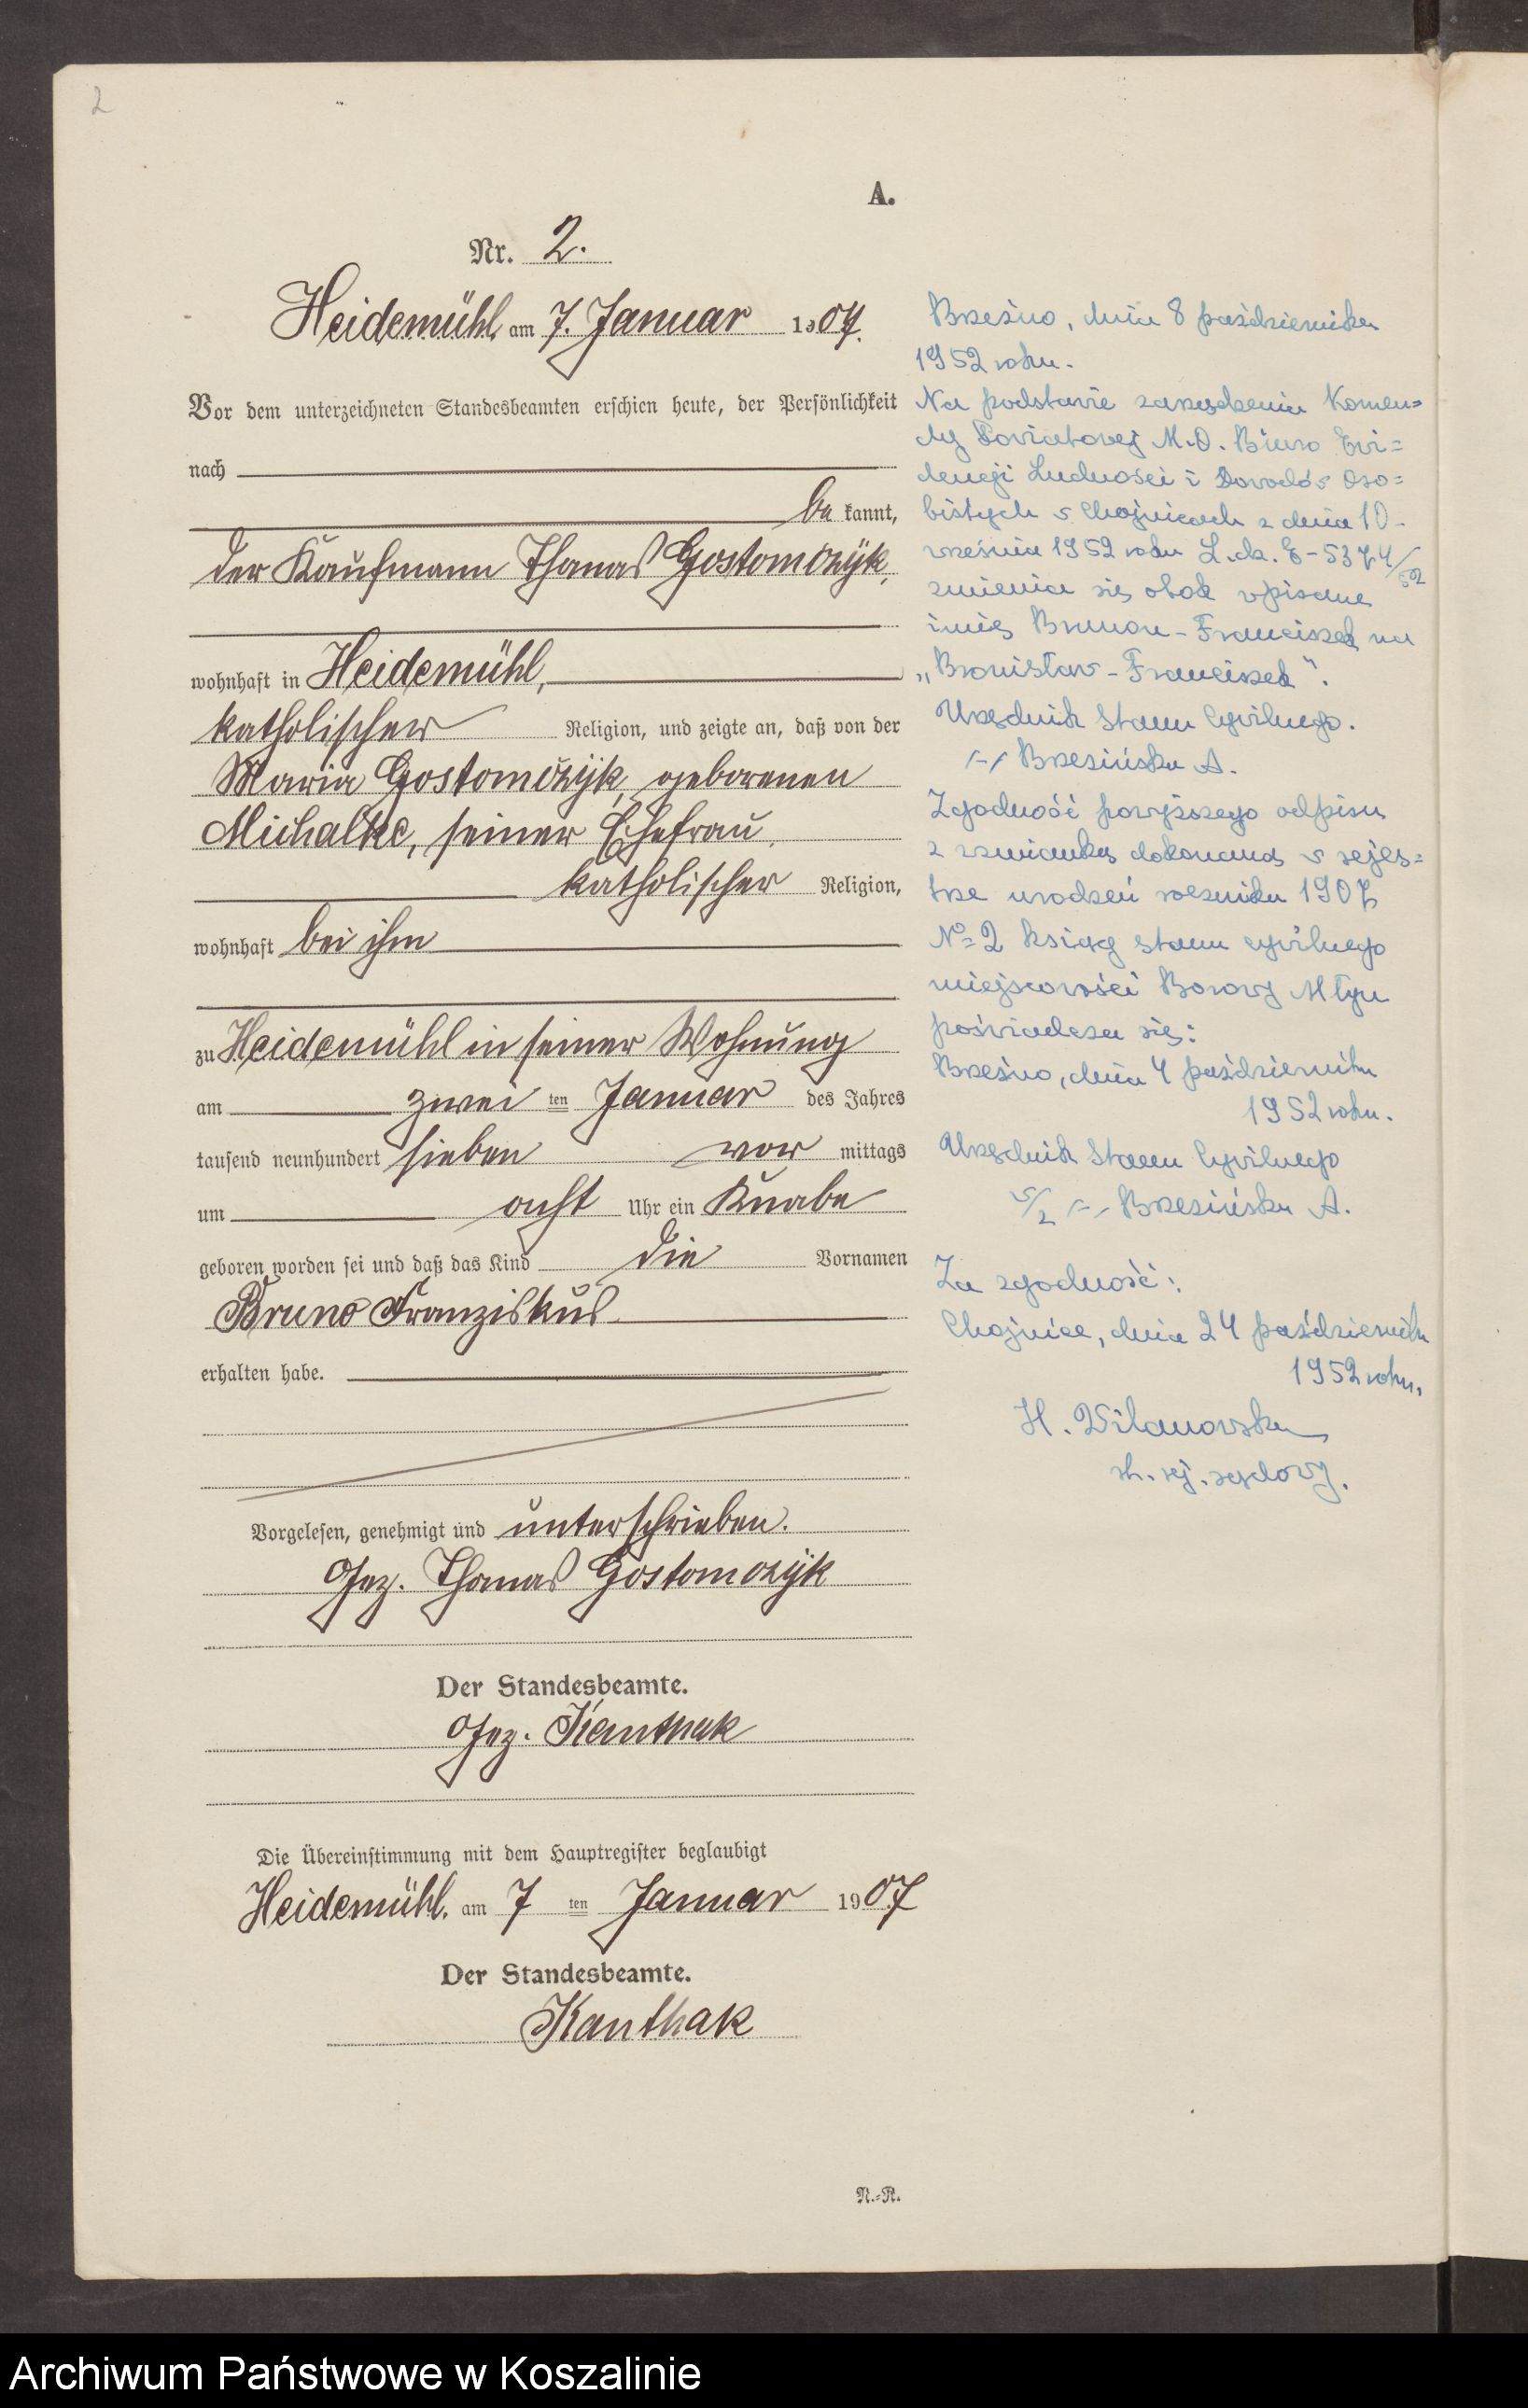 2
A.
Nr. 2.
Heidemühl, am 7. Januar 1907.
Vor dem unterzeichneten Standesbeamten erschien heute, der Persönlichkeit
nach
be kannt,
der Kaufmann Thomas Gostomczyk,
wohnhaft in Heidemühl,
katholischer Religion, und zeigte an, daß von der
Maria Gostomczyk, geborenen
Michalke, seiner Ehefrau,
katholischer Religion,
wohnhaft bei ihm
zu Heidemühl in seiner Wohnung
am zwei ten Januar des Jahres
tausend neunhundert sieben vor mittags
um acht Uhr ein Knabe
geboren worden sei und daß das Kind die Vornamen
Bruno Franziskus
erhalten habe.
Vorgelesen, genehmigt und unterschrieben.
Gez. Thomas Gostomczyk
Der Standesbeamte.
Gez. Kanthak
Die Übereinstimmung mit dem Hauptregister beglaubigt
Heidemühl, am 7 ten Januar 1907
Der Standesbeamte.
Kanthak
N.-R.
Brzeźno, dnia 8 października
1952 roku.
Na podstawie zarządzenia Komen=
dy Powiatowej M.O. Biuro Ewi=
dencji Ludności i Dowodów Oso=
bistych w Chojnicach z dnia 10-
września 1952 roku L.dz. E-5374/52
zmienia się obok wpisane
imię Brunon-Franciszek na
„Bronisław-Franciszek".
Urzędnik Stanu Cywilnego.
/-/ Brzezińska A.
Zgodność powyższego odpisu
z wzmianką dokonaną w rejes=
trze urodzeń rocznika 1907
No 2 ksiąg stanu cywilnego
miejscowości Borowy Młyn
poświadcza się:
Brzeźno, dnia 4 października
1952 roku.
Urzędnik Stanu Cywilnego
w/z /-/ Brzezińska A.
Za zgodność:
Chojnice, dnia 24 października
1952 roku.
H. Wilanowska
st. rej. sądowy.
Archiwum Państwowe w Koszalinie